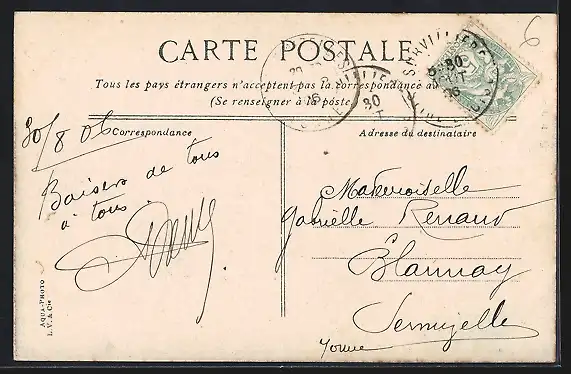 6
CARTE POSTALE
Tous les pays étrangers n'acceptent pas la correspondance au
(Se renseigner à la poste
30/8 06
Correspondance
Baisers de tous
à tous.
Adresse du destinataire
Mademoiselle
Gabrielle Renaud
Blannay
Sermizelles
Yonne
SURVILLIERS
30
AQUA-PHOTO
L. V. & Cie